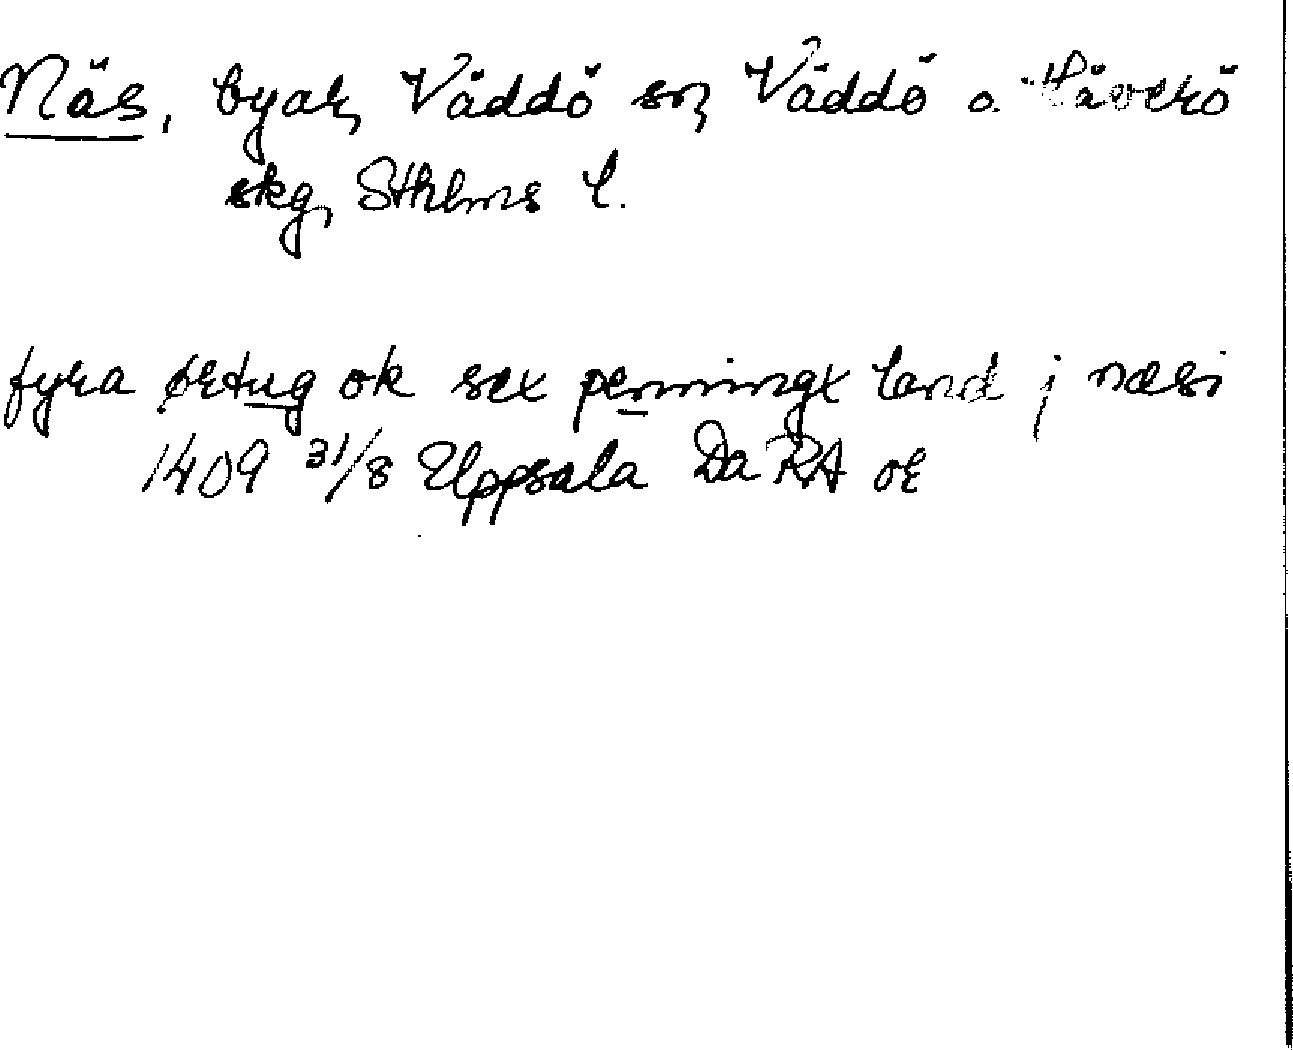 Näs, byar, Väddö sn, Väddö o Häverö
skg, Sthlms l.
fyra ørtug ok sex penningx land j næsi
1409 31/8 Uppsala Da RA or